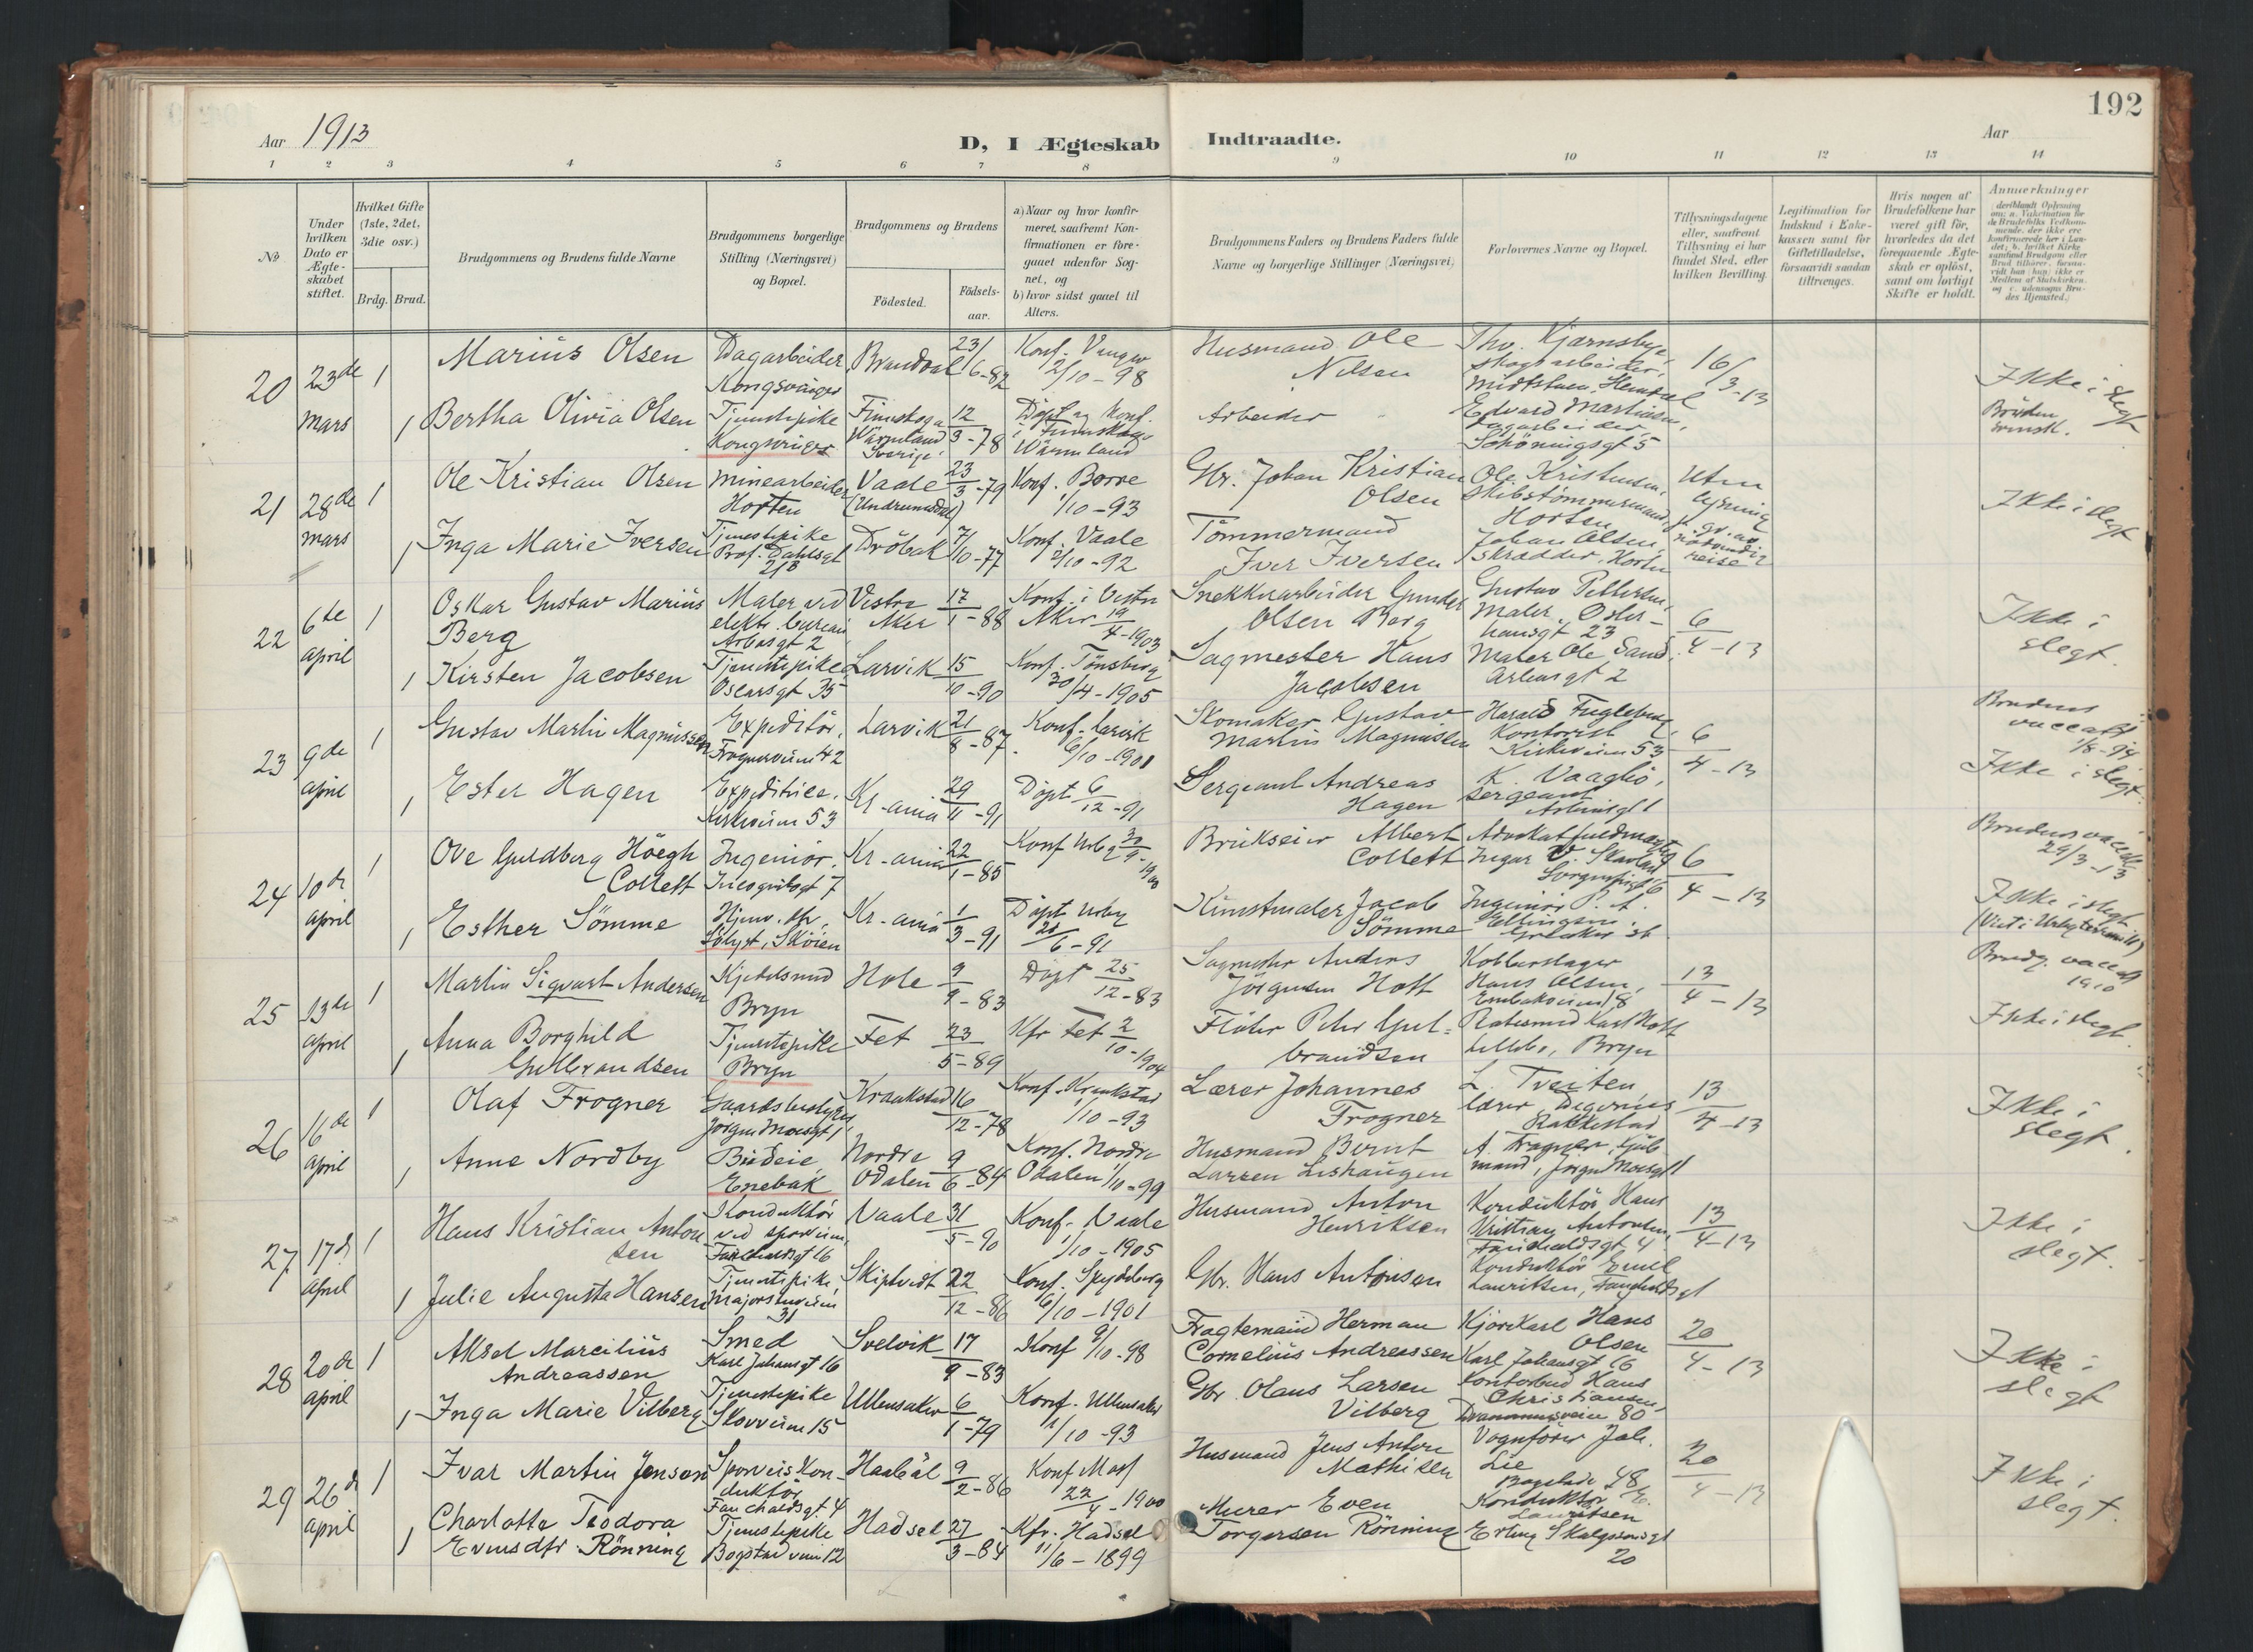 192
Aar 1913
D, I Ægteskab Indtraadte.
Aar
1 2 3 4 5 6 7 8 9 10 11 12 13 14
No
Under hvilken Dato er Ægteskabet stiftet.
Hvilket Gifte (1ste, 2det, 3die osv.)
Brdg. Brud.
Brudgommens og Brudens fulde Navne
Brudgommens borgerlige Stilling (Næringsvei) og Bopæl.
Brudgommens og Brudens
Födested.
Födselsaar.
a) Naar og hvor konfirmeret, saafremt Konfirmationen er foregaaet udenfor Sognet, og
b) hvor sidst gaaet til Alters.
Brudgommens Faders og Brudens Faders fulde Navne og borgerlige Stillinger (Næringsvei)
Forlovernes Navne og Bopæl.
Tillysningsdagene eller, saafremt Tillysning ei har fundet Sted, efter hvilken Bevilling.
Legitimation for Indskud i Enkekassen samt for Giftetilladelse, forsaavidt saadan tiltrænges.
Hvis nogen af Brudefolkene har været gift för, hvorledes da det foregaaende Ægteskab er oplöst, samt om lovligt Skifte er holdt.
Anmerkninger
20 23de mars 1 Marius Olsen Dagarbeider Kongsvinger Brandval 23/6-82 Konf. Vinger 2/10-98 Husmand Ole Nilsen Tho. Kjærnsbye, 16/3-13 Ikke i slegt
1 Bertha Olivia Olsen Tjenestepike Kongsvinger Finnskoga Wärmland Sverige 12/3-78 Döpt og konf. i Wärmland Arbeider Edvard Martinsen, dagarbeider, Schöningsgt 5 Bruden svensk.
21 28de mars 1 Ole Kristian Olsen Minearbeider Horten Vaale (Undrumsdal) 23/3-79 Konf. Borre 1/10-93 Gbr. Johan Kristian Olsen Ole Kristensen, skibstömmermand, Horten Uten lysning Ikke i slegt
1 Inga Marie Iversen Tjenestepike Prof. Dahlsgt Dröbak 7/10-77 Konf. Vaale 2/10-92 Tömmermand Iver Iversen Johan Olsen, skrædder, Horten
22 6te april 1 Oskar Gustav Marius Berg Maler ved elektr. bureau Arbosgt 2 Vestre Aker 17/1-88 Konf. i Vestre Aker 19/4-1903 Snekkerarbeider Gunder Olsen Berg Gustav Pettersen, Maler, 6/4-13 Ikke i slegt.
1 Kirsten Jacobsen Tjenestepike Oscarsgt 35 Larvik 15/10-90 Konf. Tönsberg 30/4-1905 Sagmester Hans Jacobsen Maler Ole Sand, Arbosgt 2
23 9de april 1 Gustav Martin Magnussen Expeditör, Frognerveien 42 Larvik 21/8-87. Konf. Larvik 6/10-1901 Skomaker Gustav Martin Magnussen Harald Fugleberg, Kontorist Kirkeveien 53 6/4-13 Brudens vaccatt 1/8-94
1 Ester Hagen Expeditrice. Kirkeveien 53 Kr-ania 29/11-91 Döpt 6/12-91 Sergeant Andreas Hagen K. Vaagbö, sergeant Ikke i slegt.
24 10de april 1 Ove Guldberg Höegh Collett Ingeniör, Incognitogt 7 Kr-ania 22/1-85 Konf Urbg 30/9-1900 Brukseier Albert Collett Advokatfuldmægtig 6/4-13 Brudens vaccatt 29/3-13
1 Esther Sömme Hjemv. Sölyst, Sköien Kr-ania 1/3-91 Döpt 6-91 Kunstmaler Jacob Sömme Ingeniör P. A. Ellingsen, Ikke i slegt
25 13de april 1 Martin Sigvart Andersen Kjedelsmed Bryn Hole 9/9-83 Döpt 25/12-83 Sagmester Anders Jörgensen Hoff Kobberslager Hans Olsen, 13/4-13 Brudg. vaccatt 1910
1 Anna Borghild Gulbrandsen Tjenestepike Bryn Fet 23/5-89 Kfr Fet 2/10-1904 Flöter Peder Gulbrandsen Karl Hoff Bryn Ikke i slegt.
26 16de april 1 Olaf Frogner Gaardsbestyrer Jörgen Moesgt 1 Kraakstad 16/12-78 Konf. Kraakstad 1/10-93 Lærer Johannes Frogner L. Tveiten lærer Degernes Rakkestad 13/4-13 Ikke i slegt.
1 Anne Nordby Budeie Enebak Nordre Odalen 9/6-84 Konf. Nordre Odalen 1/10-99 Husmand Bernt Larsen Lishaugen A. Frogner, kjöbmand, Jörgen Moesgt 1
27 17de april 1 Hans Kristian Antonsen Konduktör ved sporveien, Vaale 31/5-90 Konf. Vaale 1/10-1905 Husmand Anton Henriksen Konduktör Hans Kristian Antonsen, 13/4-13 Ikke i slegt.
1 Julie Augusta Hansen Tjenestepike, Majorstuveien 31 Skiptvedt 22/12-86 Konf. Spydeberg 6/10-1901 Gbr. Hans Antonsen Konduktör Emil Lauritsen,
28 20de april 1 Aksel Marcilius Andreassen Smed Karl Johansgt 16 Svelvik 17/9-83 Konf 9/10-98 Fragtemand Herman Cornelius Andreassen Kjörekarl Hans Olsen Karl Johansgt 16 20/4-13 Ikke i slegt
1 Inga Marie Vilberg Tjenestepike Skovveien 15 Ullensaker 6/1-79 Konf. Ullensaker 1/10-93 Gbr. Olaus Larsen Vilberg Kontorbud Hans Christiansen, Drammensveien 80
29 26de april 1 Ivar Martin Jensen Sporveiskonduktör Fauchaldsgt. 4 Haaböl 9/2-86 Konf Moss 22/4-1900 Husmand Jens Anton Mathisen Vognförer Joh. Lie 20/4-13 Ikke i slegt.
1 Charlotte Teodora Evensdtr. Rönning Tjenestepike Bogstadveien 12 Hadsel 27/3-84 Kfr. Hadsel 11/6-1899 Murer Even Torgersen Rönning Konduktör E. Lauritsen Erling Skalgssonsgt 20